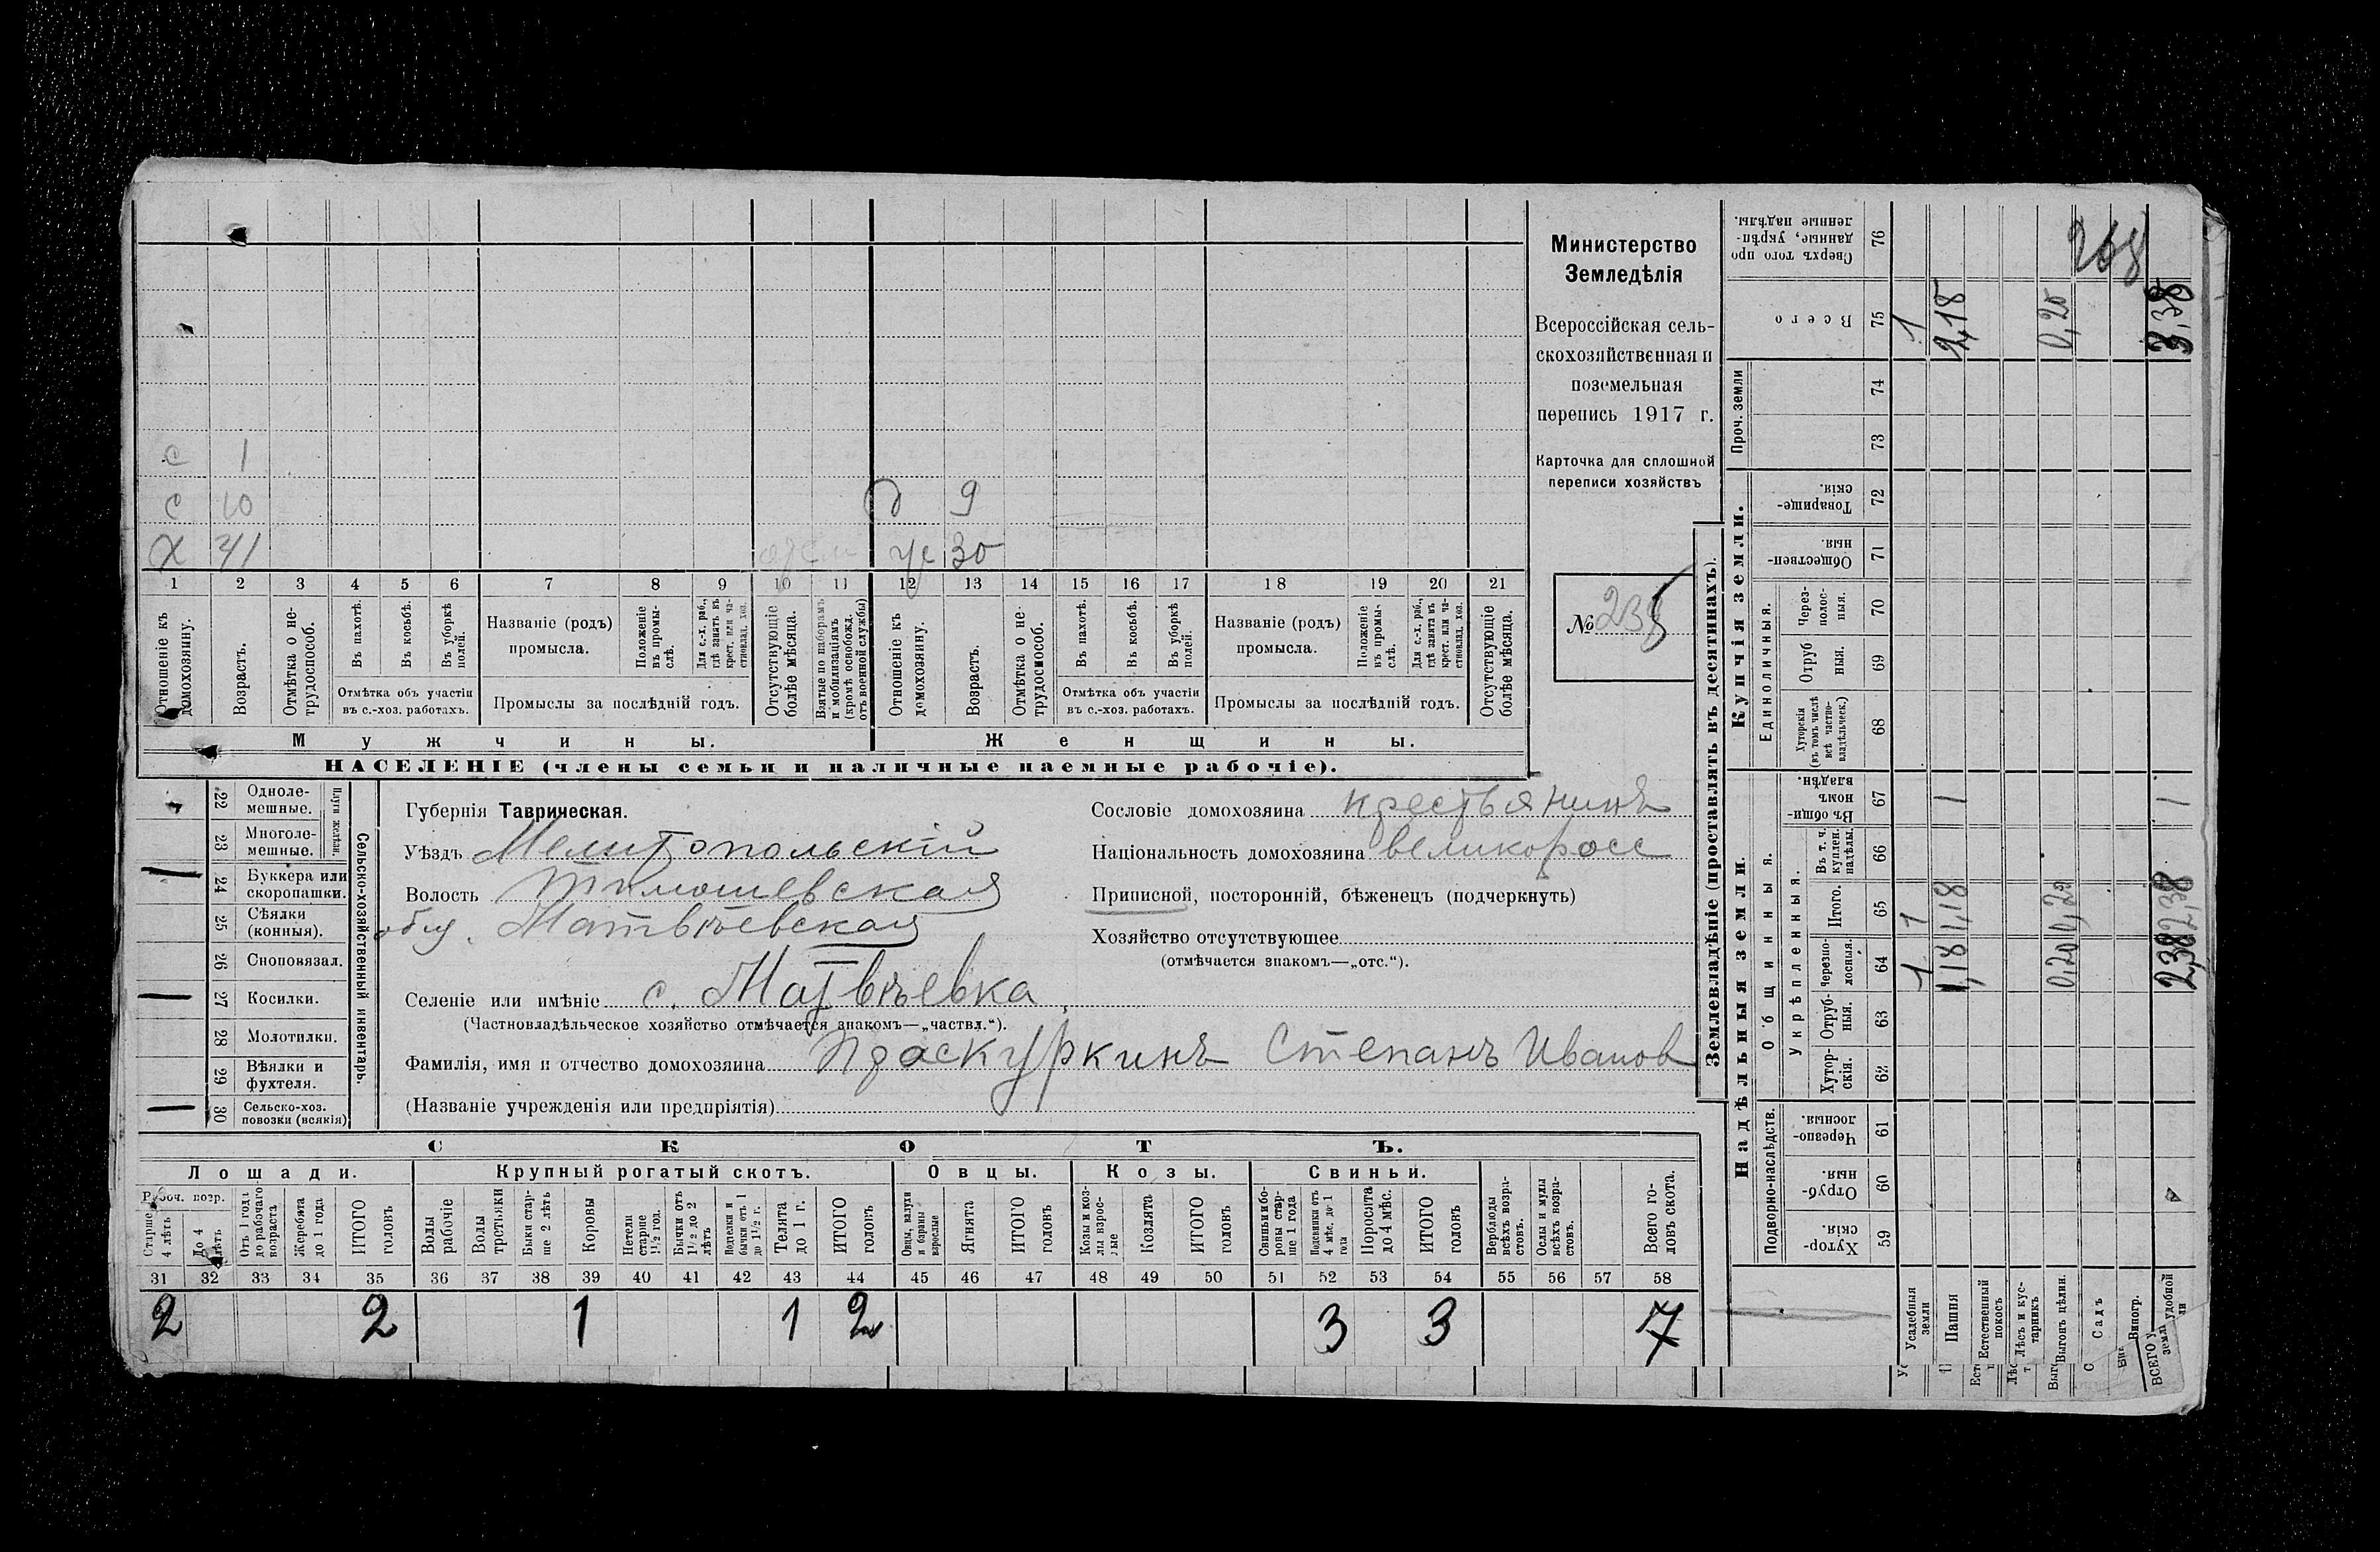 Министерство
Земледѣлія
Всероссійская сель-
скохозяйственная и
поземельная
перепись 1917 г.
Карточка для сплошной
переписи хозяйствъ
№
с 1
с 10
д 9
Х 41
30
1 2 3 4 5 6 7 8 9 10 11 12 13 14 15 16 17 18 19 20 21
Отношеніе къ домохозяину.
Возрастъ.
Отмѣтка о не-трудоспособ.
Въ пахотѣ.
Въ косьбѣ.
Въ уборкѣ полей.
Отмѣтка объ участіи въ с.-хоз. работахъ.
Названіе (родъ) промысла.
Положеніе въ промы-слѣ.
Для с.-х. раб., гдѣ занятъ въ крест. или ча-стновлад. хоз.
Промыслы за послѣдній годъ.
Отсутствующіе болѣе мѣсяца.
Взятые по наборамъ и мобилизаціямъ (кромѣ освобожд. отъ военной службы)
Отношеніе къ домохозяину.
Возрастъ.
Отмѣтка о не-трудоспособ.
Въ пахотѣ.
Въ косьбѣ.
Въ уборкѣ полей.
Отмѣтка объ участіи въ с.-хоз. работахъ.
Названіе (родъ) промысла.
Положеніе въ промы-слѣ.
Для с.-х. раб., гдѣ занята въ крест. или ча-стновлад. хоз.
Промыслы за послѣдній годъ.
Отсутствующіе болѣе мѣсяца.
Мужчины.
Женщины.
НАСЕЛЕНІЕ (члены семьи и наличные наемные рабочіе).
22 Одноле-мешные.
23 Многоле-мешные.
Плуги желѣзн.
24 Буккера или скоропашки.
25 Сѣялки (конныя).
26 Сноповязал.
27 Косилки.
28 Молотилки.
29 Вѣялки и фухтеля.
30 Сельско-хоз. повозки (всякія)
Сельско-хозяйственный инвентарь.
Губернія Таврическая.
Уѣздъ Мелитопольскій
Волость Тимошевская
общ. Матвѣевская
Селеніе или имѣніе с. Матвѣевка
(Частновладѣльческое хозяйство отмѣчается знакомъ—„частвл.“).
Фамилія, имя и отчество домохозяина Праскуркинъ Степанъ Иванов
(Названіе учрежденія или предпріятія)
Сословіе домохозяина крестьянинъ
Національность домохозяина великоросс
Приписной, посторонній, бѣженецъ (подчеркнуть)
Хозяйство отсутствующее
(отмѣчается знакомъ—„отс.“).
СКОТЪ.
Лошади. Крупный рогатый скотъ. Овцы. Козы. Свиньи.
Рабоч. возр.
Старше 4 лѣтъ
До 4 лѣтъ
Отъ 1 года до рабочаго возраста
Жеребята до 1 года
ИТОГО головъ
Волы рабочіе
Волы третьяки
Быки стар-ше 2 лѣтъ
Коровы
Нетели старше 1½ год.
Бычки отъ 1½ до 2 лѣтъ
Подтелки и бычки отъ 1 до 1½ г.
Телята до 1 г.
ИТОГО головъ
Овцы, валухи и бараны взрослые
Ягнята
ИТОГО головъ
Козы и коз-лы взрос-лые
Козлята
ИТОГО головъ
Свиньи и бо-ровы стар-ше 1 года
Подсвинки отъ 4 мѣс. до 1 года
Поросята до 4 мѣс.
ИТОГО головъ
Верблюды всѣхъ возра-стовъ.
Ослы и мулы всѣхъ возра-стовъ.
Всего го-ловъ скота.
31 32 33 34 35 36 37 38 39 40 41 42 43 44 45 46 47 48 49 50 51 52 53 54 55 56 57 58
2 2 1 1 2 3 3 7
Землевладѣніе (проставлять въ десятинахъ).
Надѣльныя земли.
Купчія земли.
Проч. земли
Подворно-наслѣдств.
Общинныя.
Укрѣпленныя.
Единоличныя.
Хутор-скія. 59
Отруб-ныя. 60
Черезпо-лосныя. 61
Хутор-скія. 62
Отруб-ныя. 63
Черезпо-лосныя. 64
Итого. 65
Въ т. ч. куплен. надѣлы. 66
Въ общин-номъ владѣн. 67
Хуторскія (въ томъ числѣ всѣ частно-владѣльческ.) 68
Отруб ныя. 69
Через-полос-ныя. 70
Обществен-ныя. 71
Товарище-скія. 72
73
74
Всего 75
Сверхъ того про данные, укрѣп-ленные надѣлы. 76
Усадебныя земли
Пашня
Естественный покосъ
Лѣсъ и кус-тарникъ
Выгонъ цѣлин.
Садъ
Виногр.
ВСЕГО удобной земли
1 1 1
1,18 1,18 1 2,18
0,20 0,20 0,20
2,38 1 3,38